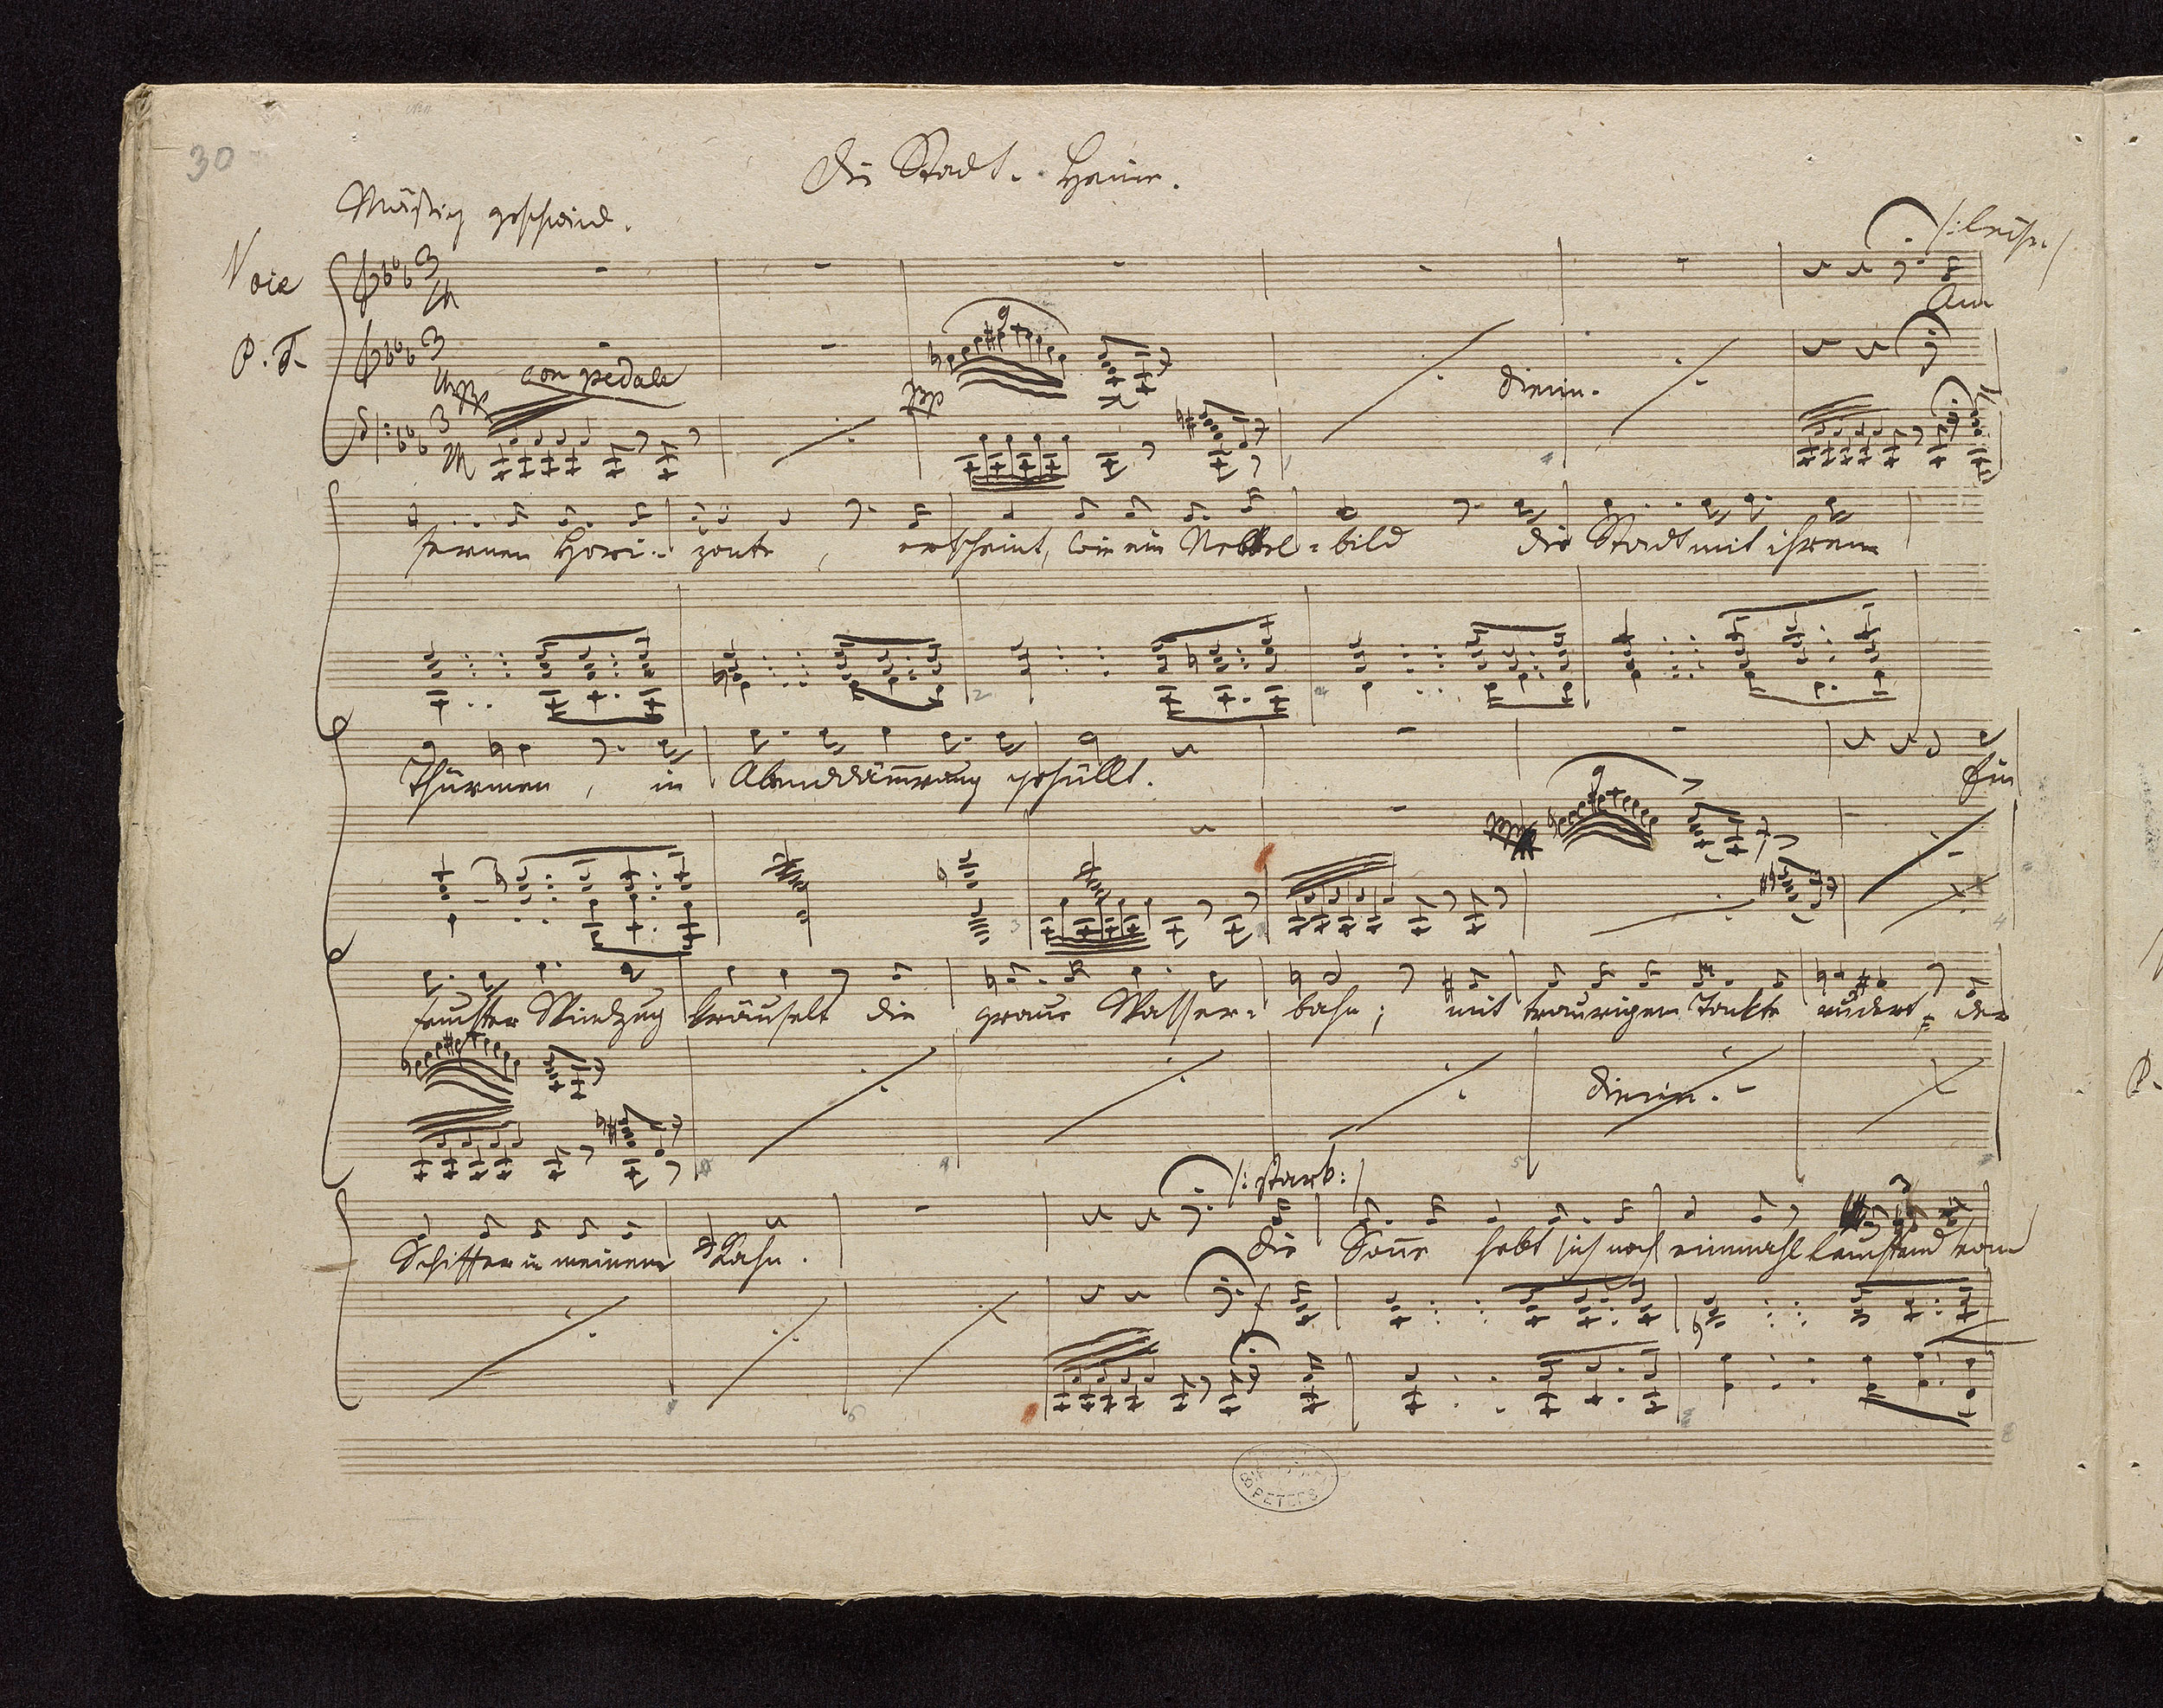 30
Die Stadt. Heine.
Mäßig geschwind.
/: leise /
Voce
Am
P. F.
pp con pedale
9
ppp
dimin.
fernen Horizonte, erscheint, wie ein Nebelbild die Stadt mit ihren
Thürmen, in Abenddämrung gehüllt. Ein
9
feuchter Windzug kräuselt die graue Wasser-bahn; mit traurigem Takte rudert der
dimin.
/: stark :/
3
Schiffer in meinem Kahn. die Sonne hebt sich noch einmahl leuchtend vom
PETERS